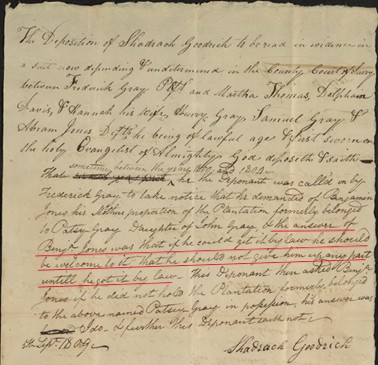 The Deposition of Shadrach Goodrich to be read in evidence in
a suit now depending & undetermined in the County Court of Surry
between Frederick Gray Pltf and Martha Thomas, Dolphain
Davis, & Hannah his wife, Henry Gray, Samuel Gray &
Abram Jones Dfts he being of lawful age & first sworn on
the holy Evangelist of Almighty God deposeth & saith
sometime between the years and 1804
That he the Deponant was called on by
Frederick Gray to take notice that he demanded of Benjamin
Jones his Mothers proportion of the Plantation formely belonged
to Patsey Gray Daughter of John Gray & the answer of
Benjn. Jones was that if he could get it by law he should
be welcome to it that he should not give him up any part
untill he got it by law. This Deponant then asked Benjn.
Jones if he did not hold the Plantation formerly belonged
to the above named Patsey Gray in possession, his answer was
I do & further this Deponant saith not
Septr. 18 1809
Shadrach Goodrich